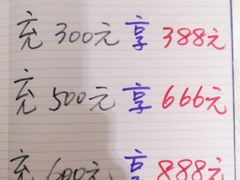 充 300元 享 388元
充 500元 享 666元
充 600元 享 888元